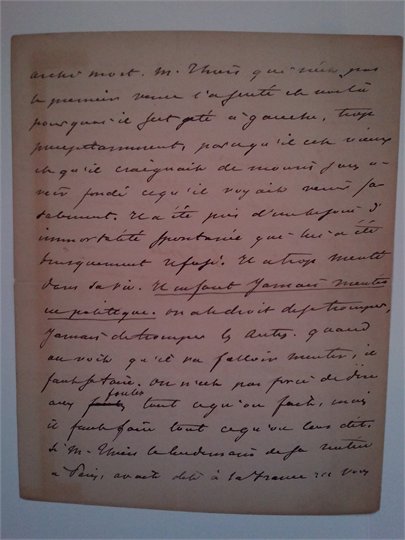 archi mort. M. Thiers qui n'est pas
le premier venu l'a senti et voilà
pourquoi il s'est jeté à gauche, trop
précipitamment, parce qu'il est vieux
et qu'il craignait de mourir sans a-
voir fondé ce qu'il voyait venir fa-
talement. Il a été pris d'un besoin d'
immortalité spontanée qui lui a été
brusquement refusé. Il a trop menti
dans sa vie. Il ne faut jamais mentir
en politique. On a le droit de se tromper,
jamais de tromper les autres. Quand
on voit qu'il va falloir mentir, il
faut se taire. On n'est pas forcé de dire
aux foules tout ce qu'on fait, mais
il faut faire tout ce qu'on leur dit.
Si M. Thiers le lendemain de sa rentrée
à Paris, avait dit à la France : " Vous